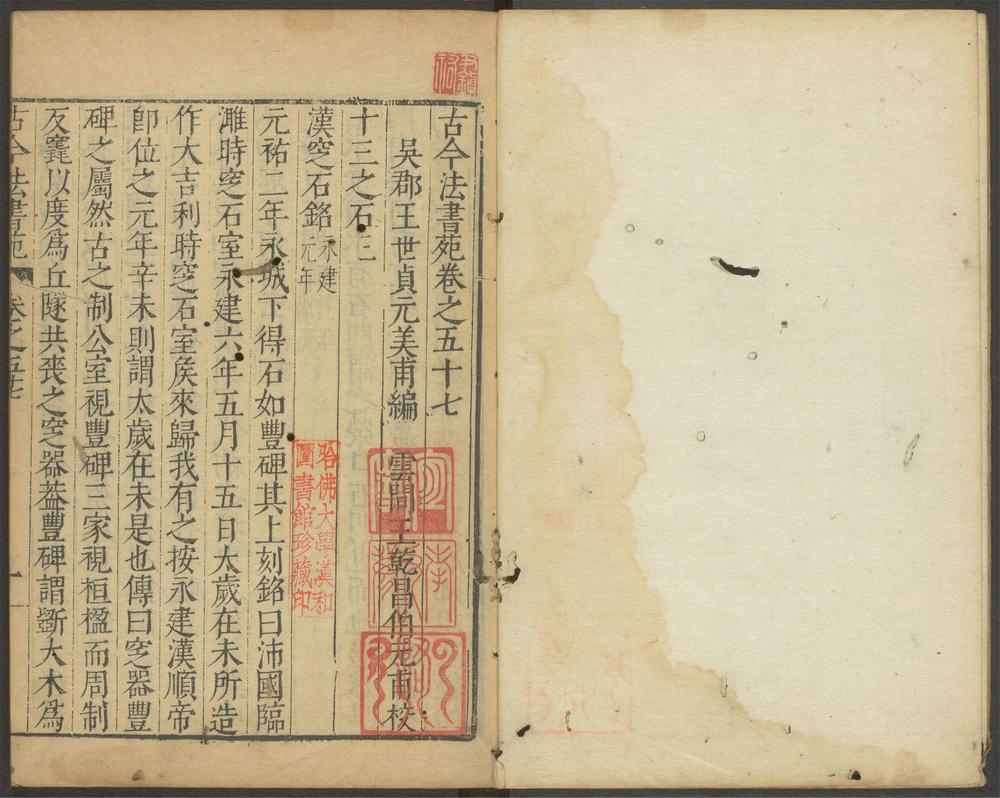 古今法書苑卷之五十七
吳郡王世貞元美甫編 雲間王乾昌伯元甫校
十三之石三
漢窆石銘永建元年
元祐二年永城下得石如豐碑其上刻銘曰沛國臨
濉時窆石室永建六年五月十五日太歲在未所造
作大吉利時窆石室矦來歸我有之按永建漢順帝
卽位之元年辛未則謂太歲在未是也傳曰窆器豐
碑之屬然古之制公室視豐碑三家視桓楹而周制
及竁以度爲丘隧共喪之窆器葢豐碑謂斵大木爲
古今法書苑 卷之五十七 一
哈佛大學漢和
圖書館珍藏印